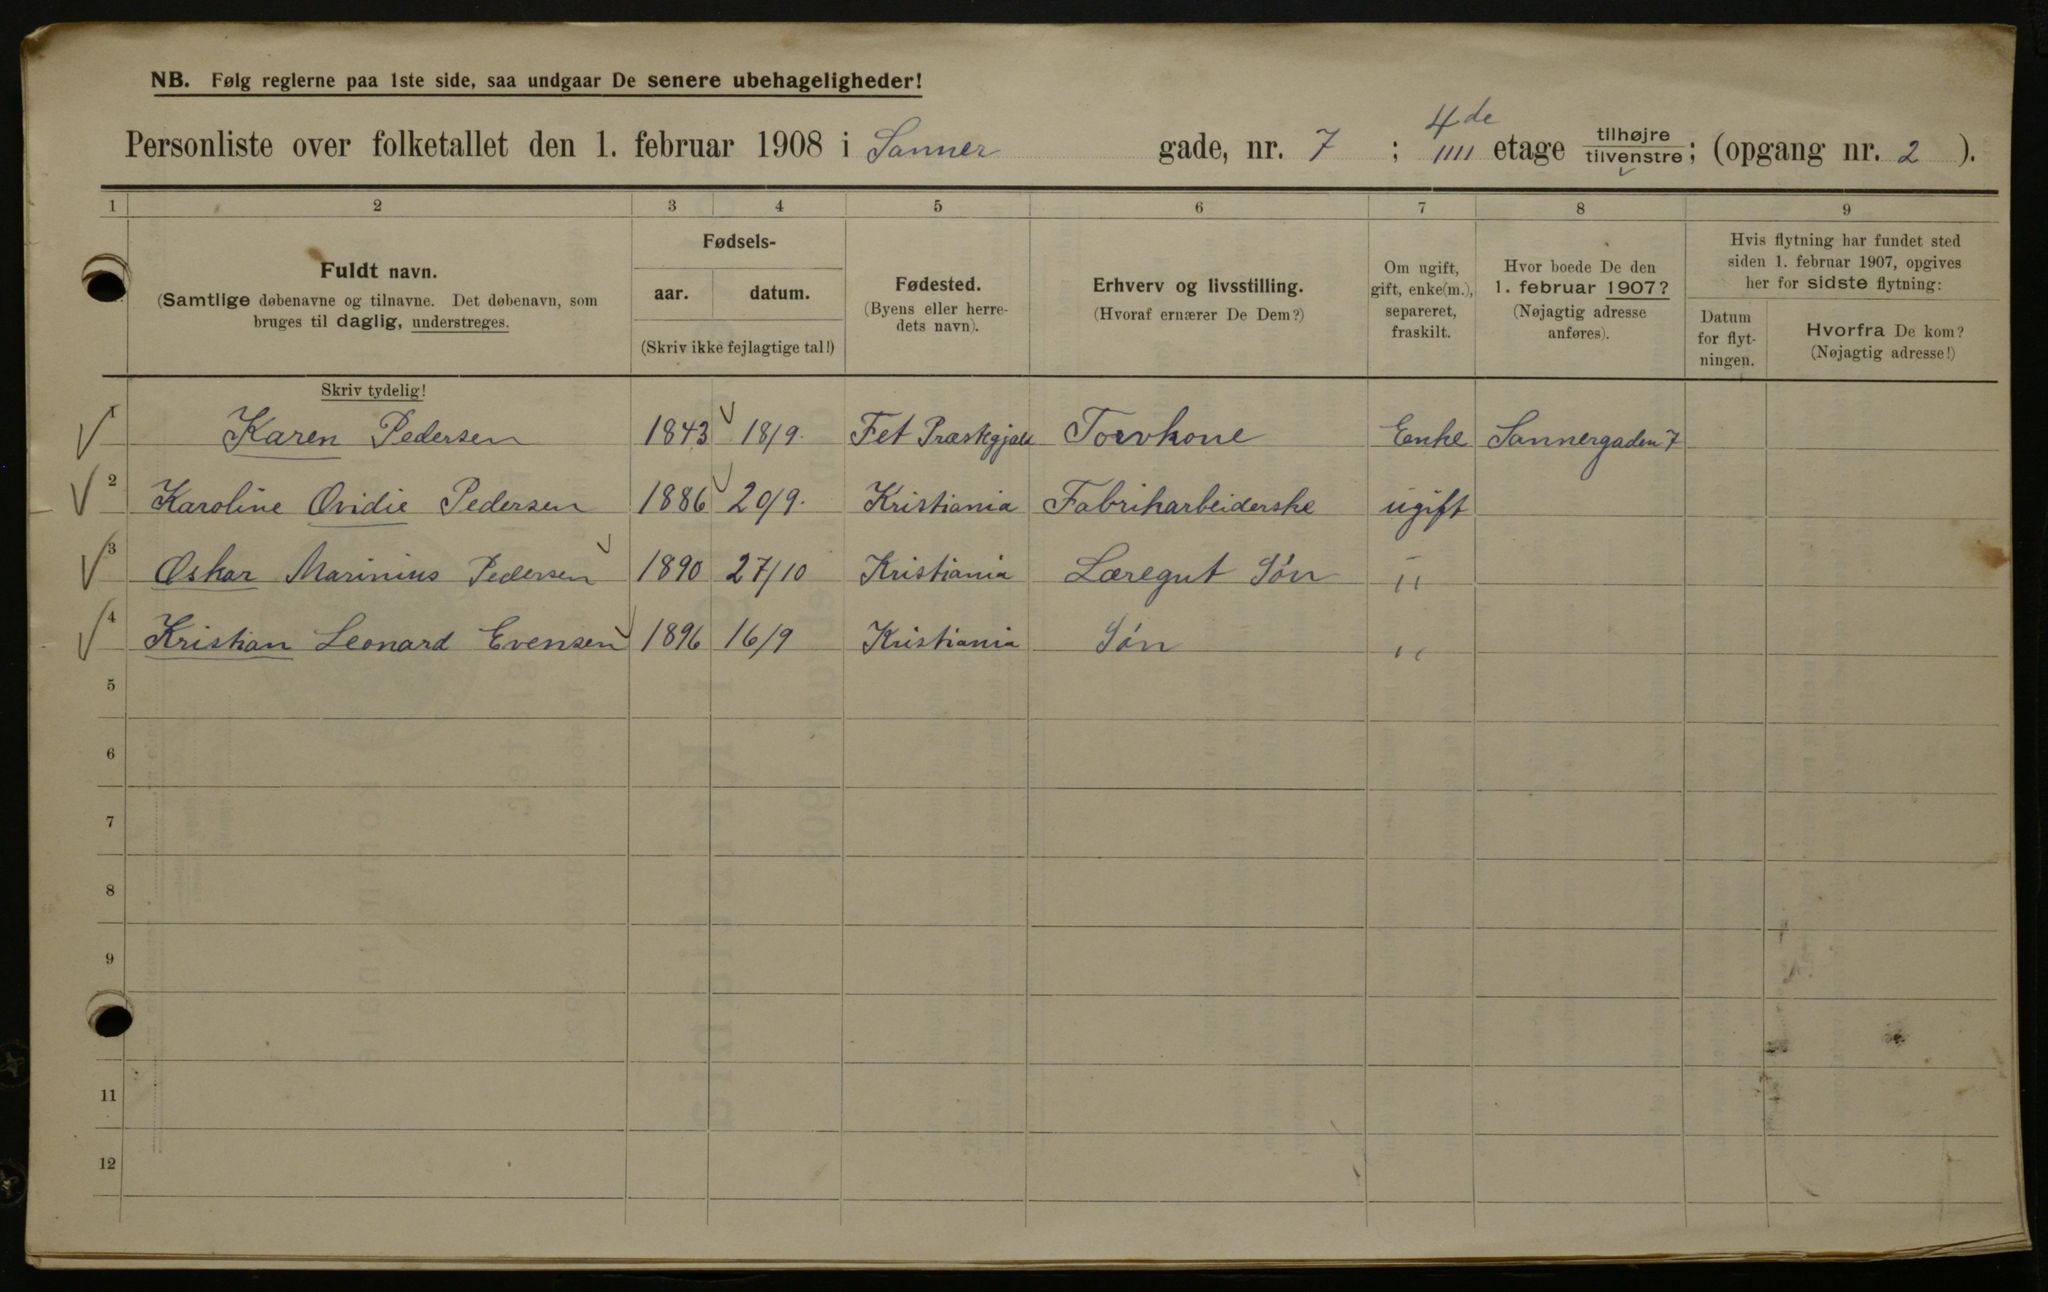 NB. Følg reglerne paa 1ste side, saa undgaar De senere ubehageligheder!
Personliste over folketallet den 1. februar 1908 i Sanner gade, nr. 7 ; 4de IIII etage tilhøjre tilvenstre; (opgang nr. 2 ).
1 2 3 4 5 6 7 8 9
Fuldt navn.
(Samtlige døbenavne og tilnavne. Det døbenavn, som
bruges til daglig, understreges.
Fødsels-
aar. datum.
(Skriv ikke fejlagtige tal!)
Fødested.
(Byens eller herre-
dets navn).
Erhverv og livsstilling.
(Hvoraf ernærer De Dem?)
Om ugift,
gift, enke(m.),
separeret,
fraskilt.
Hvor boede De den
1. februar 1907?
(Nøjagtig adresse
anføres).
Hvis flytning har fundet sted
siden 1. februar 1907, opgives
her for sidste flytning:
Datum
for flyt-
ningen.
Hvorfra De kom?
(Nøjagtig adresse!)
Skriv tydelig!
1 Karen Pedersen 1843 18/9. Fet Præstegjæld Torvkone Enke Sannergaden 7
2 Karoline Ovidie Pedersen 1886 20/9. Kristiania Fabrikarbeiderske ugift
3 Oskar Marinius Pedersen 1890 27/10 Kristiania Læregut Søn "
4 Kristian Leonard Evensen 1896 16/9 Kristiania Søn "
5
6
7
8
9
11
12